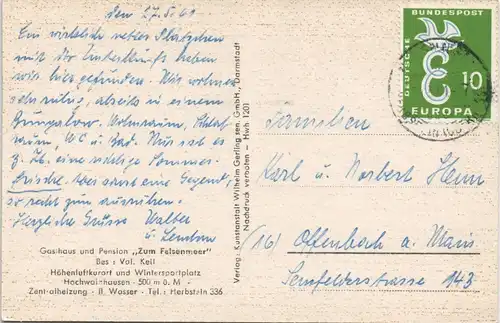 den 27.5.61
Ein wirklich nettes Plätzchen
mit der Unterkunft haben
wir hier gefunden. Wir wohnen
sehr ruhig, abseits in einem
Bungalow. Wohnraum, Schlaf-
raum, WC u. Bad. Nur ist es
z. Zt. eine richtige Sommer-
frische. sonst eine Gegend,
so recht zum ausruhen.
Herzliche Grüsse Walter
u.
Gasthaus und Pension „Zum Felsenmeer"
Bes.: Val. Keil
Höhenluftkurort und Wintersportplatz
Hochwaldhausen - 500 m ü. M -
Zentralheizung - fl. Wasser - Tel.: Herbstein 336
Verlag: Kunstanstalt Wilhelm Gerling sen. GmbH., Darmstadt
Nachdruck verboten — Hwh 1201
DEUTSCHE BUNDESPOST
10
EUROPA
Familien
Karl u. Norbert Henn
(16) Offenbach a. Main
Senefelderstrasse 143